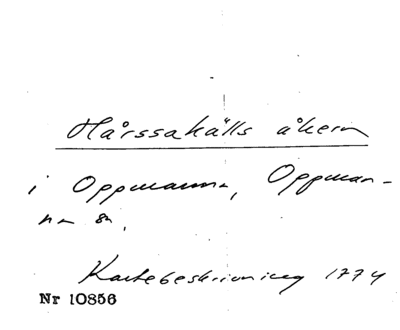 Hårssakälls åkern
i Oppmanna, Oppman-
na sn.
Kartebeskrivning 1774
Nr 10856